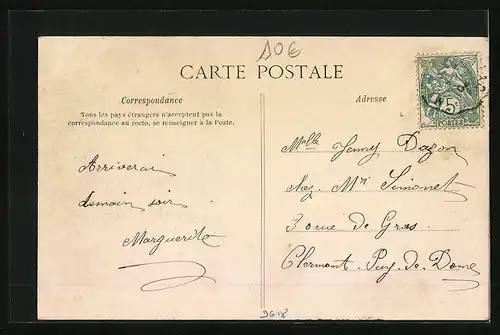 10€
CARTE POSTALE
Correspondance
Adresse
Tous les pays étrangers n'acceptent pas la
correspondance au recto, se renseigner à la Poste.
Arriverai
demain soir
Marguerite
Melle Jenny Dazon
chez Mr Simonet
30 rue de Gras
Clermont. Puy. de. Dome
5
POSTES
9618